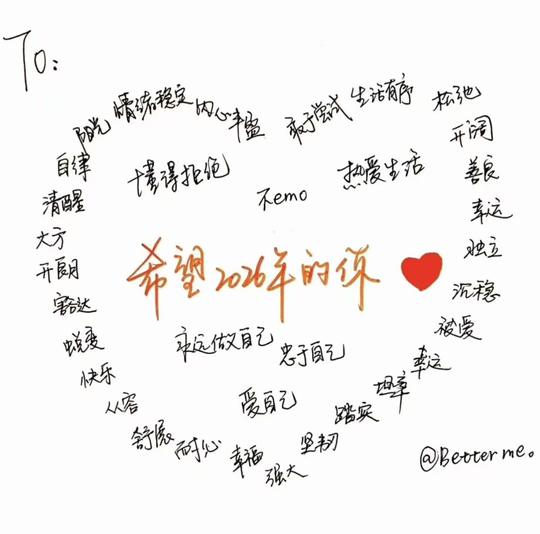 To:
阳光
情绪稳定
内心丰盈
敢于尝试
生活有序
松弛
开阔
善良
幸运
独立
沉稳
被爱
幸运
坦率
踏实
坚韧
强大
幸福
耐心
舒展
从容
快乐
蜕变
豁达
开朗
大方
清醒
自律
懂得拒绝
不emo
热爱生活
希望2026年的你
永远做自己
忠于自己
爱自己
@Better me。